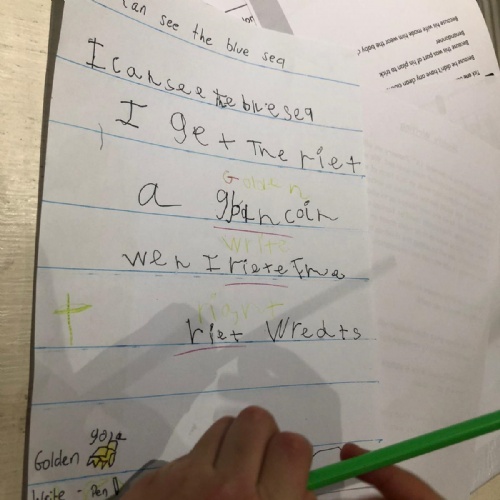 can see the blue sea
I can see the blue sea
I get The riet
Golden
a golden coin
write
wen I riete The
right
riet Wredts
gold
Golden
Write - Pen
Because his wife made him wear the baby
Because this was part of his plan to trick
Because he didn't have any clean